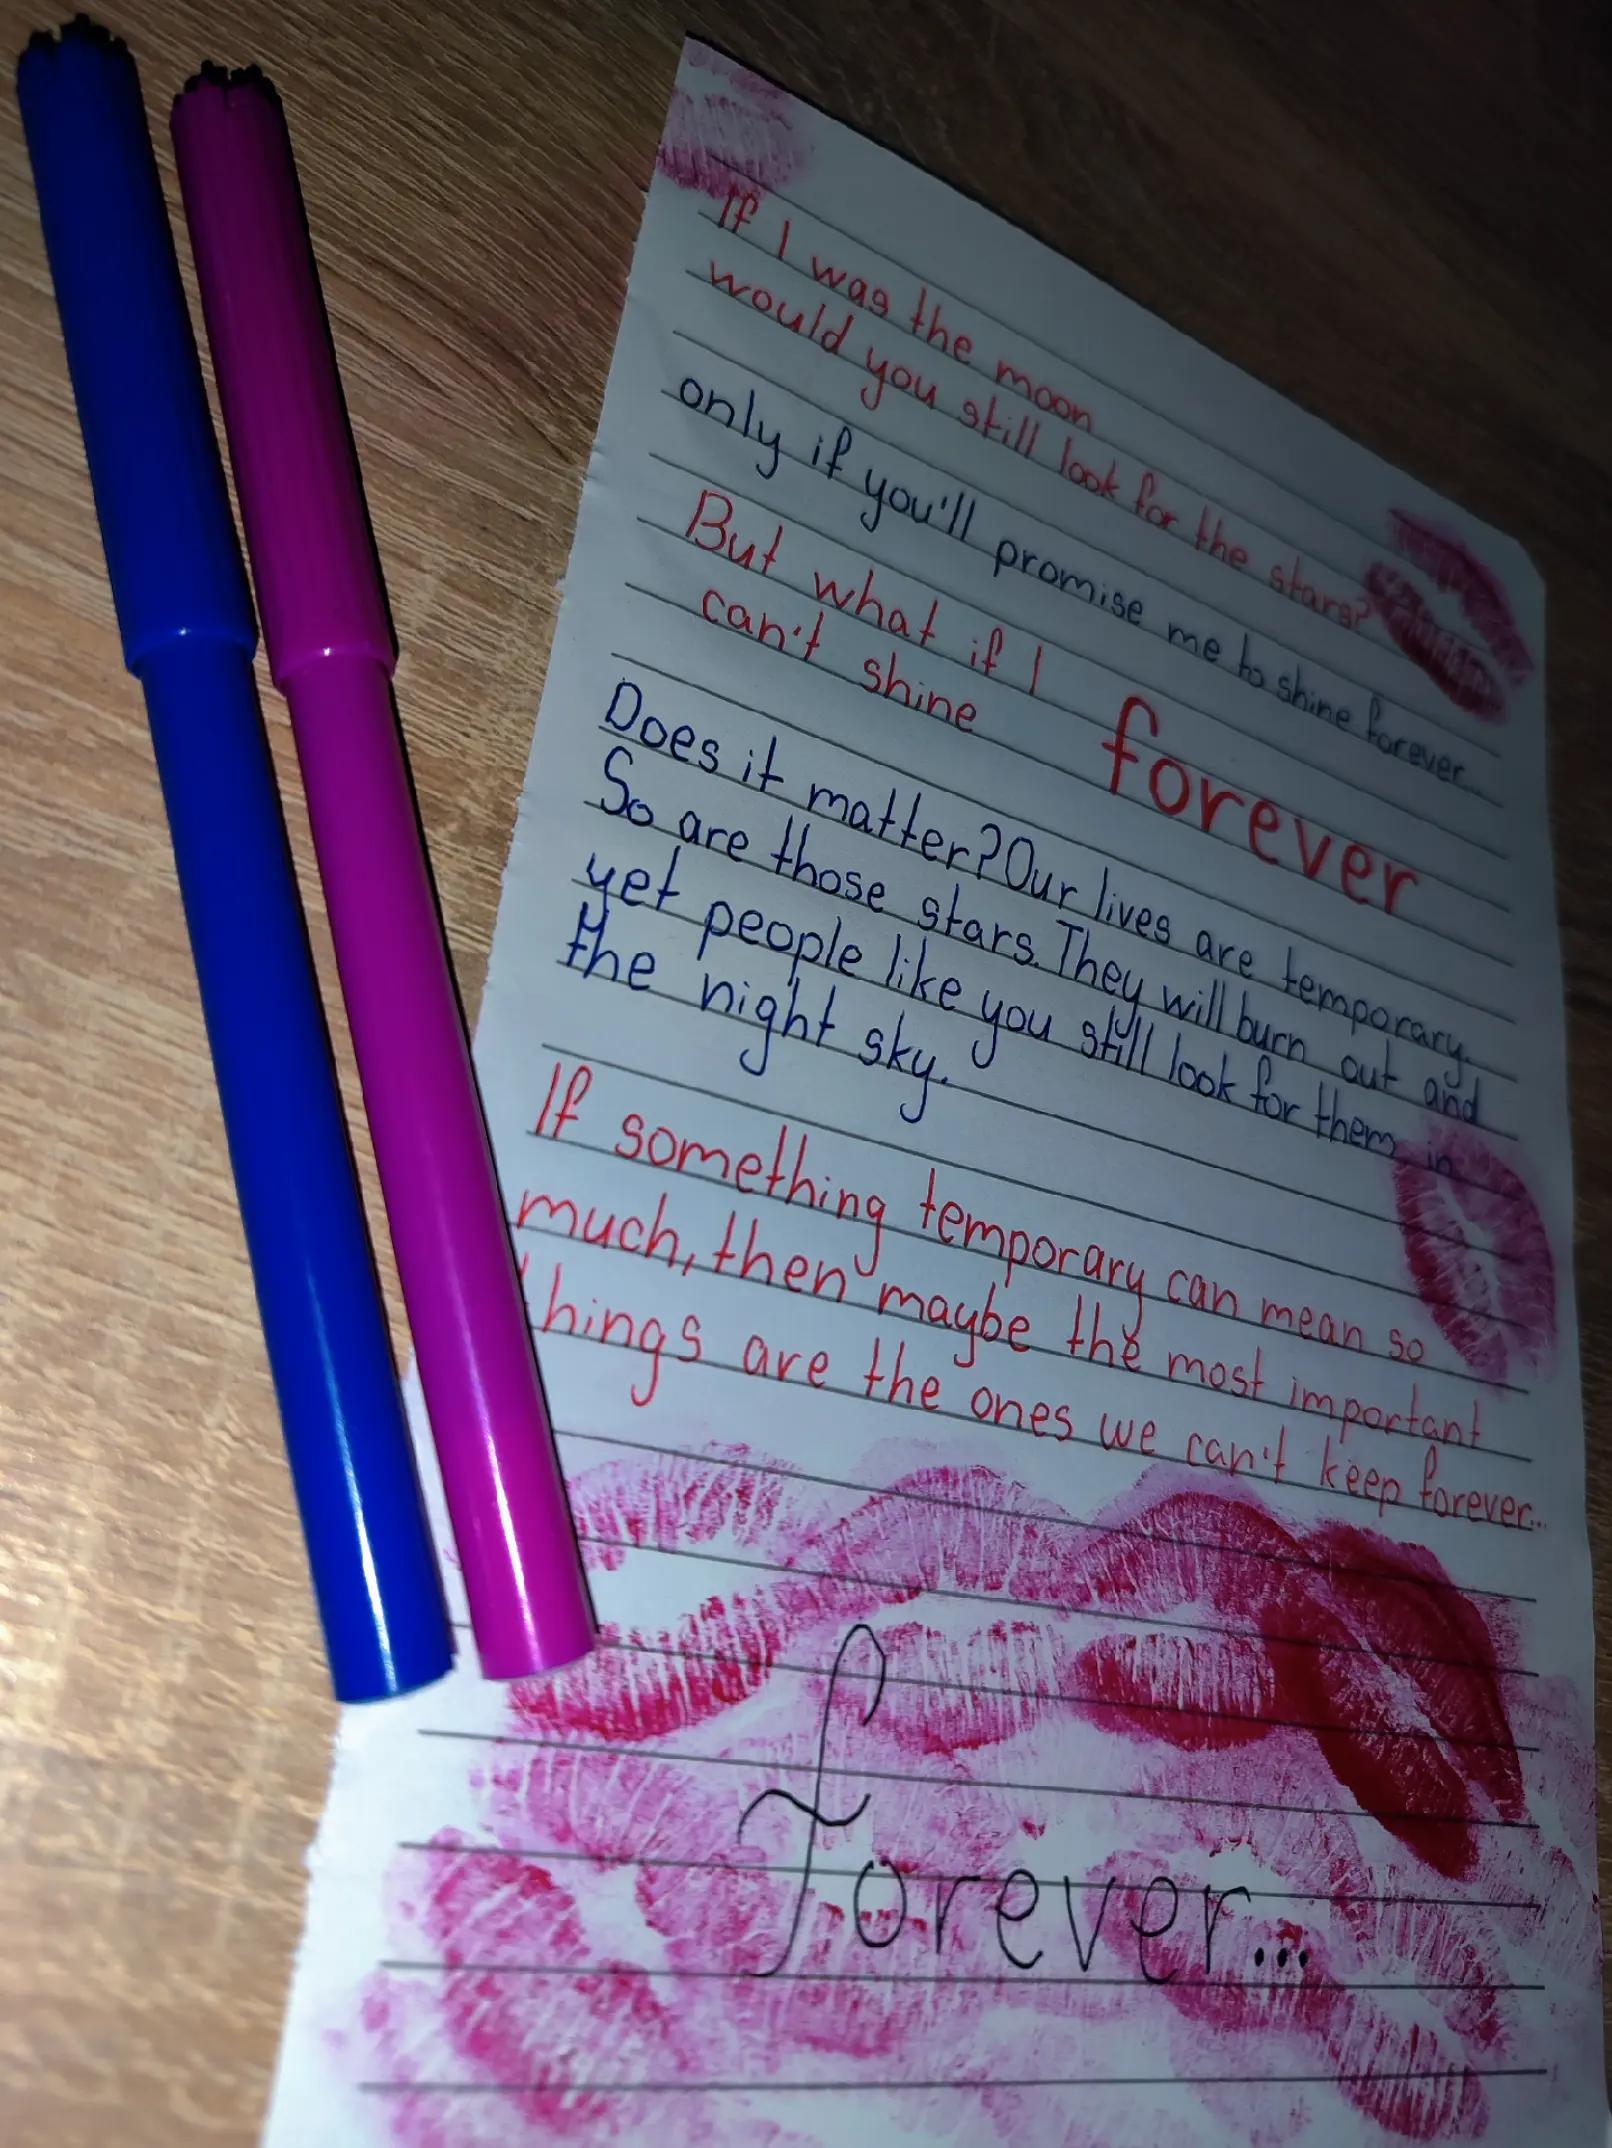 If I was the moon
would you still look for the stars?
only if you'll promise me to shine forever...
But what if I
can't shine forever
Does it matter? Our lives are temporary.
So are those stars. They will burn out and
yet people like you still look for them in
the night sky.
If something temporary can mean so
much, then maybe the most important
things are the ones we can't keep forever...
forever...